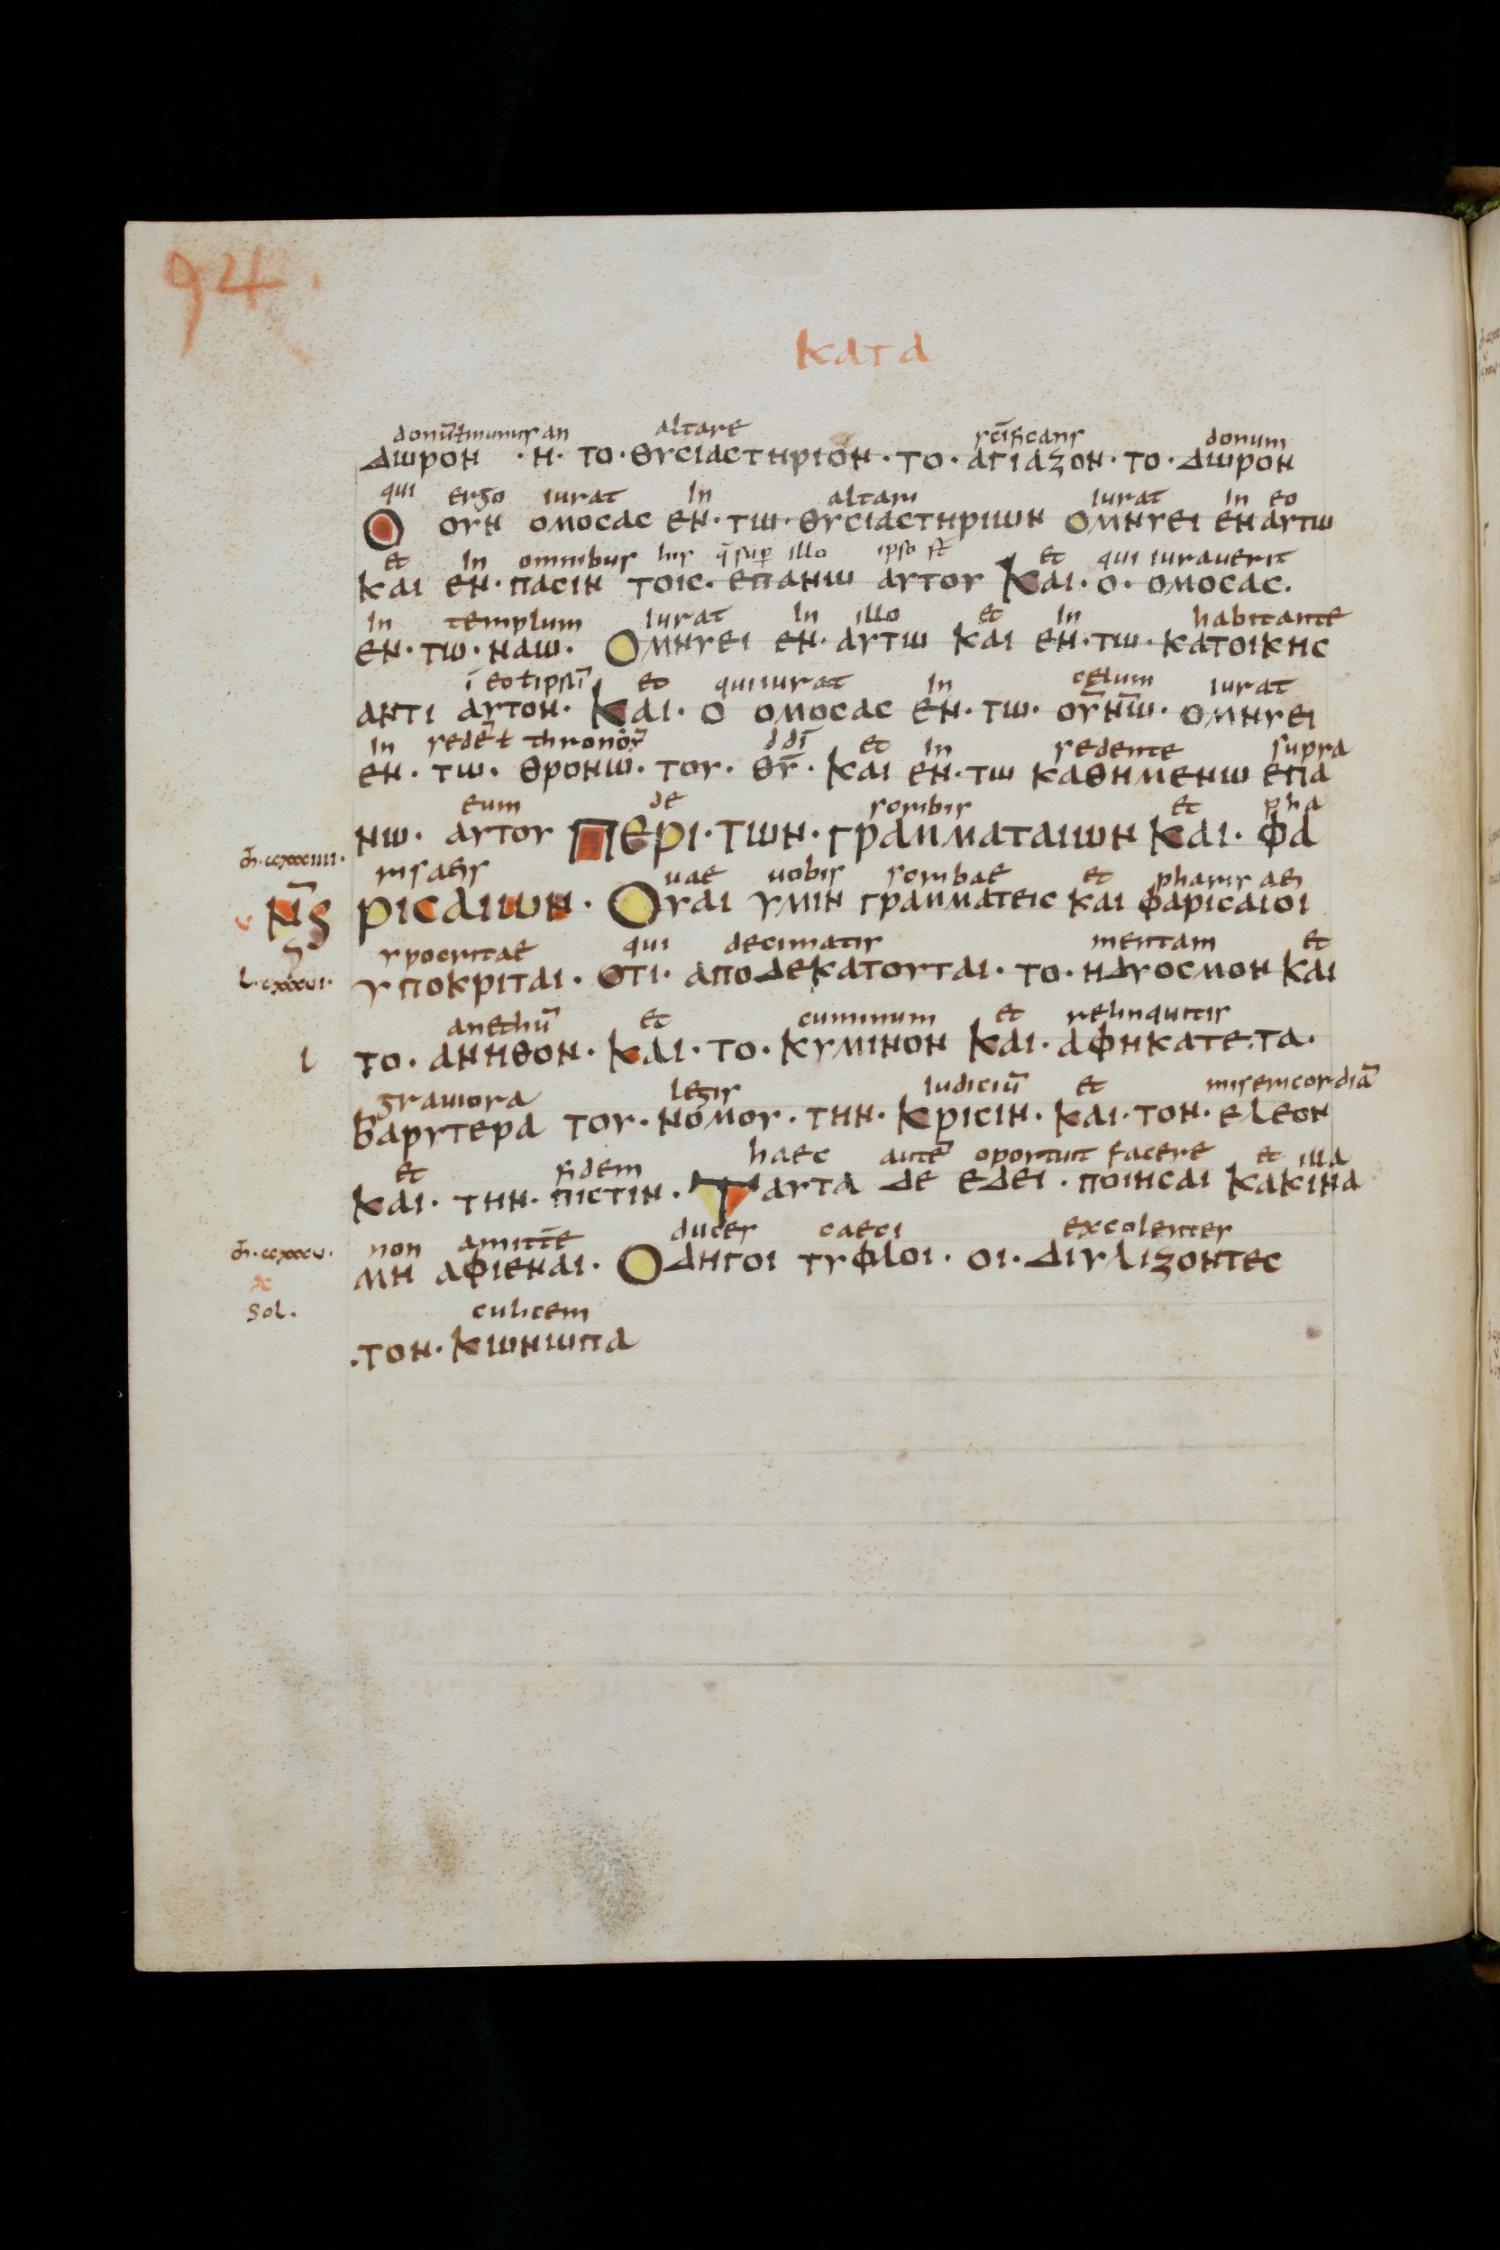 94.
κατα
donū ł munus an altare sc̄ificans donum
Δωρον · η · το · θυσιαστηριον · το · αγιαζον · το · Δωρον
qui ergo iurat In altari iurat in eo
Ο ουν ομοσας εν · τω · θυσιαστηριων ομηυει εν αυτω
et In omnibus his q̄ sup̄ illo ipso st̄
και εν · πασιν τοις · επανω αυτου Και · ο · ομοσας.
et qui iuraverit
In templum iurat In illo et In habitante
εν · τω · ναω · Ομηυει εν · αυτω και εν · τω · κατοικης
ī eo ł ipsū et qui iurat In cęlum iurat
αντι αυτον · Και · ο ομοσας εν · τω · ου̅νω̅ · ομηυει
In sede ł thronō dd̄i et In sedente supra
εν · τω · θρονω · του · θ̅υ̅ · και εν · τω καθημενω επα
eum de scribis et pha
νω · αυτου Περι · των · γραμματαιων Και · φα
cħ · ccxxxiiii ·
risaeis uae uobis scribae et pharisaei
ρισαιων · Ουαι υμιν γραμματεις και φαρισαιοι
ypocritae qui decimatis mentam et
υποκριται · οτι · αποδεκατουται · το · ηδυοσμον και
L · cxxxvi ·
anethū et cuminum et relinquitis
το · ανηθον · και · το · κυμινον και · αφηκατε · τα ·
ι
grauiora legis Iudiciū et misericordiā
βαρυτερα του · νομου · την · κρισιν · και · τον · ελεον
et fidem haec autē oportuit facere et illa
και · την · πιστιν · Ταυτα δε εδει · ποιησαι κακινα
cħ · ccxxxv ·
non amitte duces caeci excolentes
μη αφιεναι · Οδηγοι τυφλοι · οι · διυλιζοντες
Sol.
culicem
· τον · κωνωπα